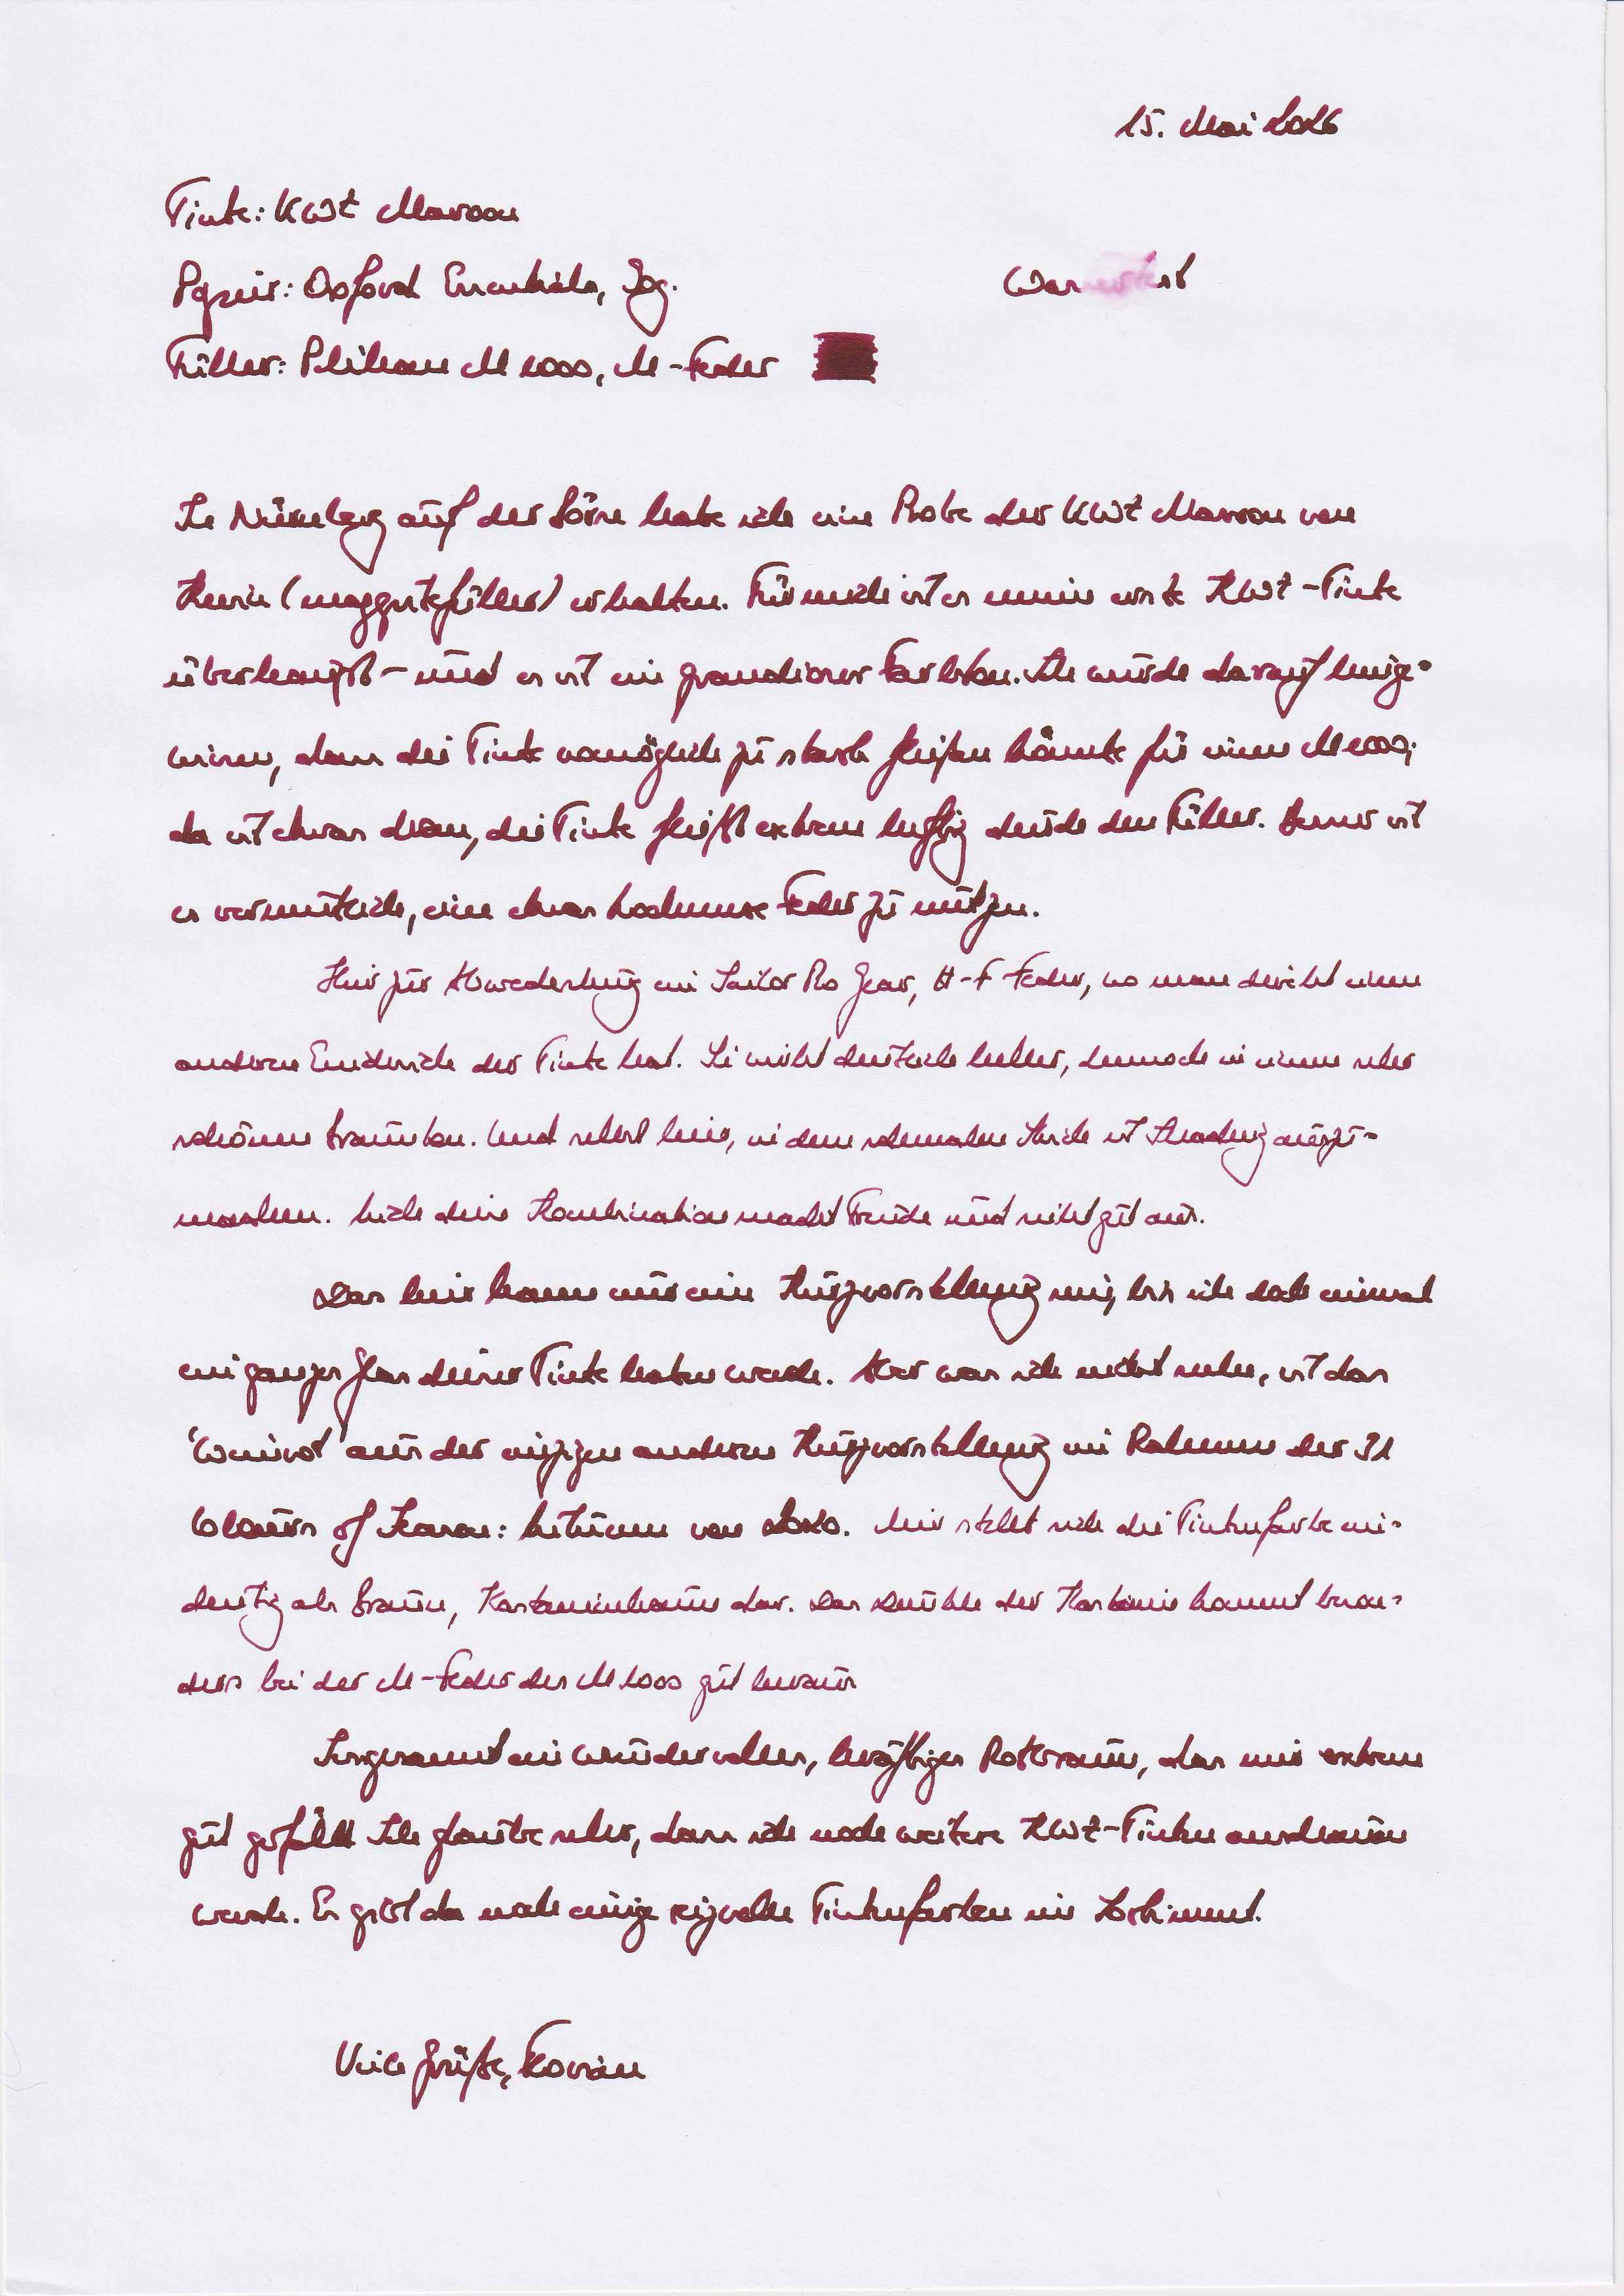 15. Mai 2026
Tinte: KWZ Maroon
Papier: Oxford Optik, 90g.
Wassertest
Füller: Pelikan M1000, M-Feder
In Nürnberg auf der Börse habe ich eine Probe der KWZ Maroon von
Kevin (maggutefüller) erhalten. Für mich ist es meine erste KWZ-Tinte
überhaupt – und es ist ein grandioser Farbton. Ich wurde darauf hinge-
wiesen, dass die Tinte womöglich zu stark fließen könnte für einen M1000;
da ist etwas dran, die Tinte fließt extrem luftig durch den Füller. Besser ist
es vermutlich, eine etwas trockenere Feder zu nutzen.
Hier zur Abwechslung ein Sailor Pro Gear, H-F Feder, wo man direkt einen
anderen Eindruck der Tinte hat. Sie wirkt deutlich heller, dennoch in einem sehr
schönen Braunton. Und selbst hier, in dem schmalen Strich ist Shading auszu-
machen. Auch diese Kombination macht Freude und sieht gut aus.
Das hier kann nur eine Kurzvorstellung sein, bis ich doch einmal
ein ganzes Glas dieser Tinte haben werde. Aber was ich nicht sehe, ist das
'Weinrot' aus der einzigen anderen Kurzvorstellung im Rahmen der 31
Colours of Season: Autumn von 2020. Mir stellt sich die Tintenfarbe ein-
deutig als Braun, Kastanienbraun dar. Das Dunkle der Kastanie kommt beson-
ders bei der M-Feder des M1000 gut heraus
Insgesamt ein wundervolles, kräftiges Rotbraun, das mir extrem
gut gefällt. Ich glaube sehr, dass ich noch weitere KWZ-Tinten anschauen
werde. Es gibt da noch einige reizvolle Tintenfarben im Sortiment.
Viele Grüße, Florian